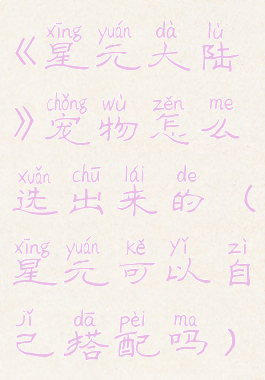 xīng yuán dà lù
《星元大陆
chǒng wù zěn me
》宠物怎么
xuǎn chū lái de
选出来的（
xīng yuán kě yǐ zì
星元可以自
jǐ dā pèi ma
己搭配吗）